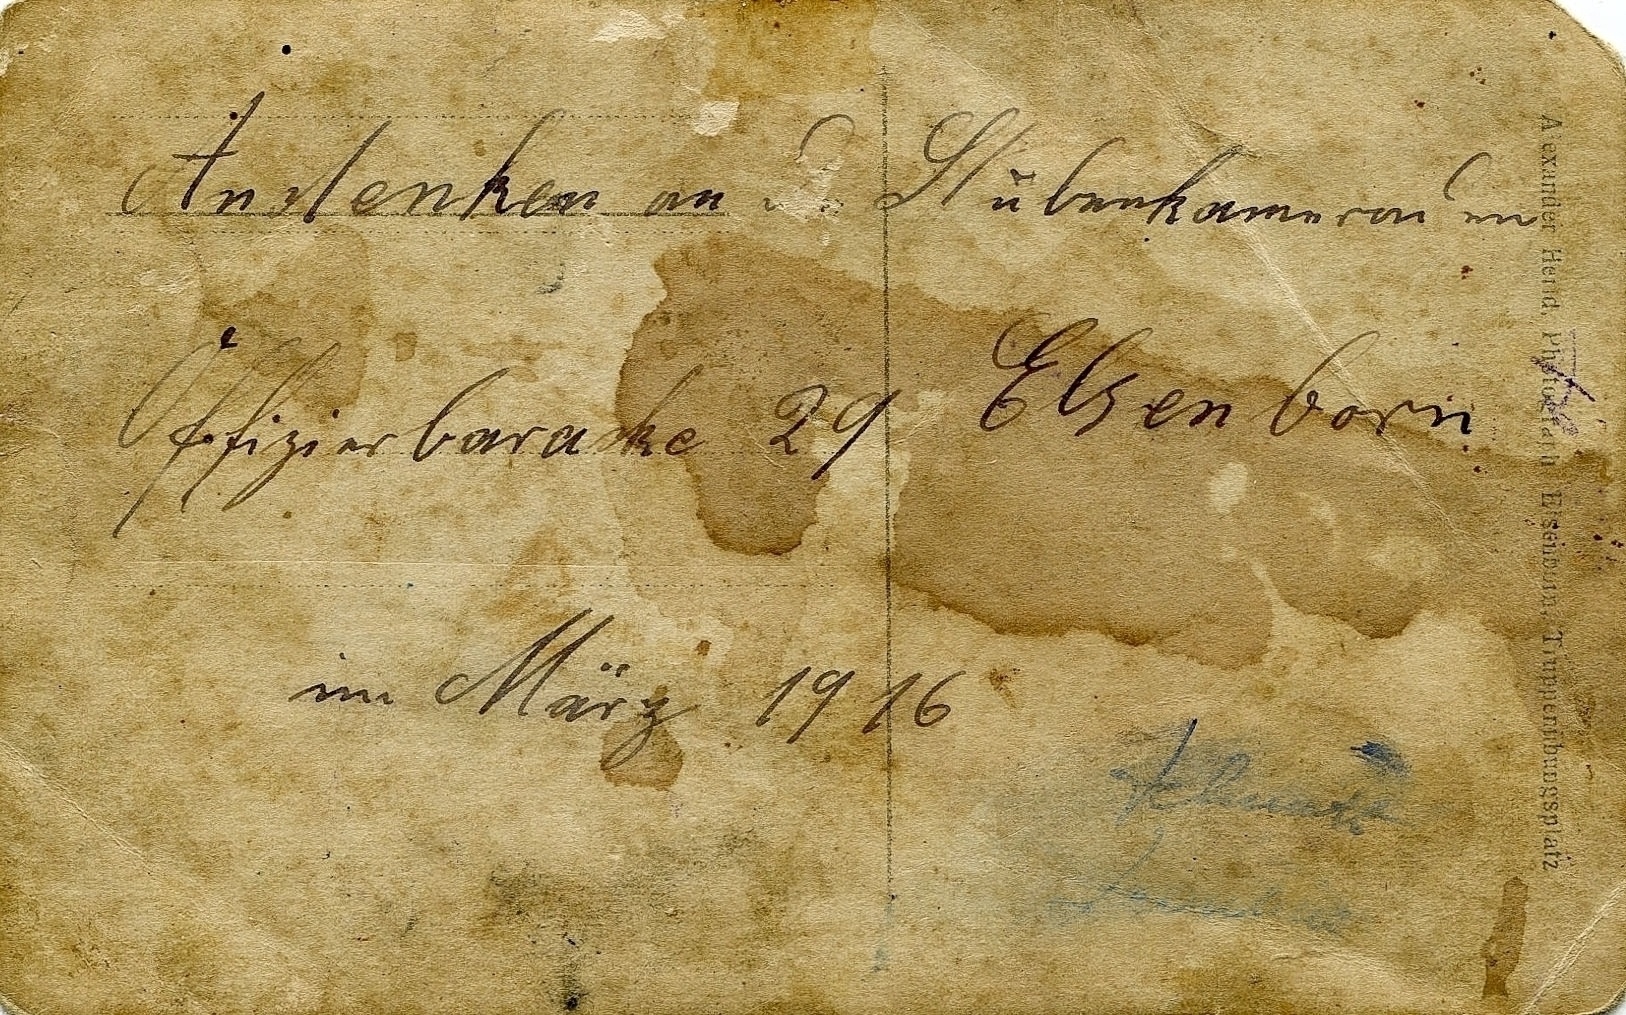 Andenken an d. Stubenkameraden
Offizierbaracke 29 Elsenborn
im März 1916
Alexander Heind, Photograph Elsenborn, Truppenübungsplatz